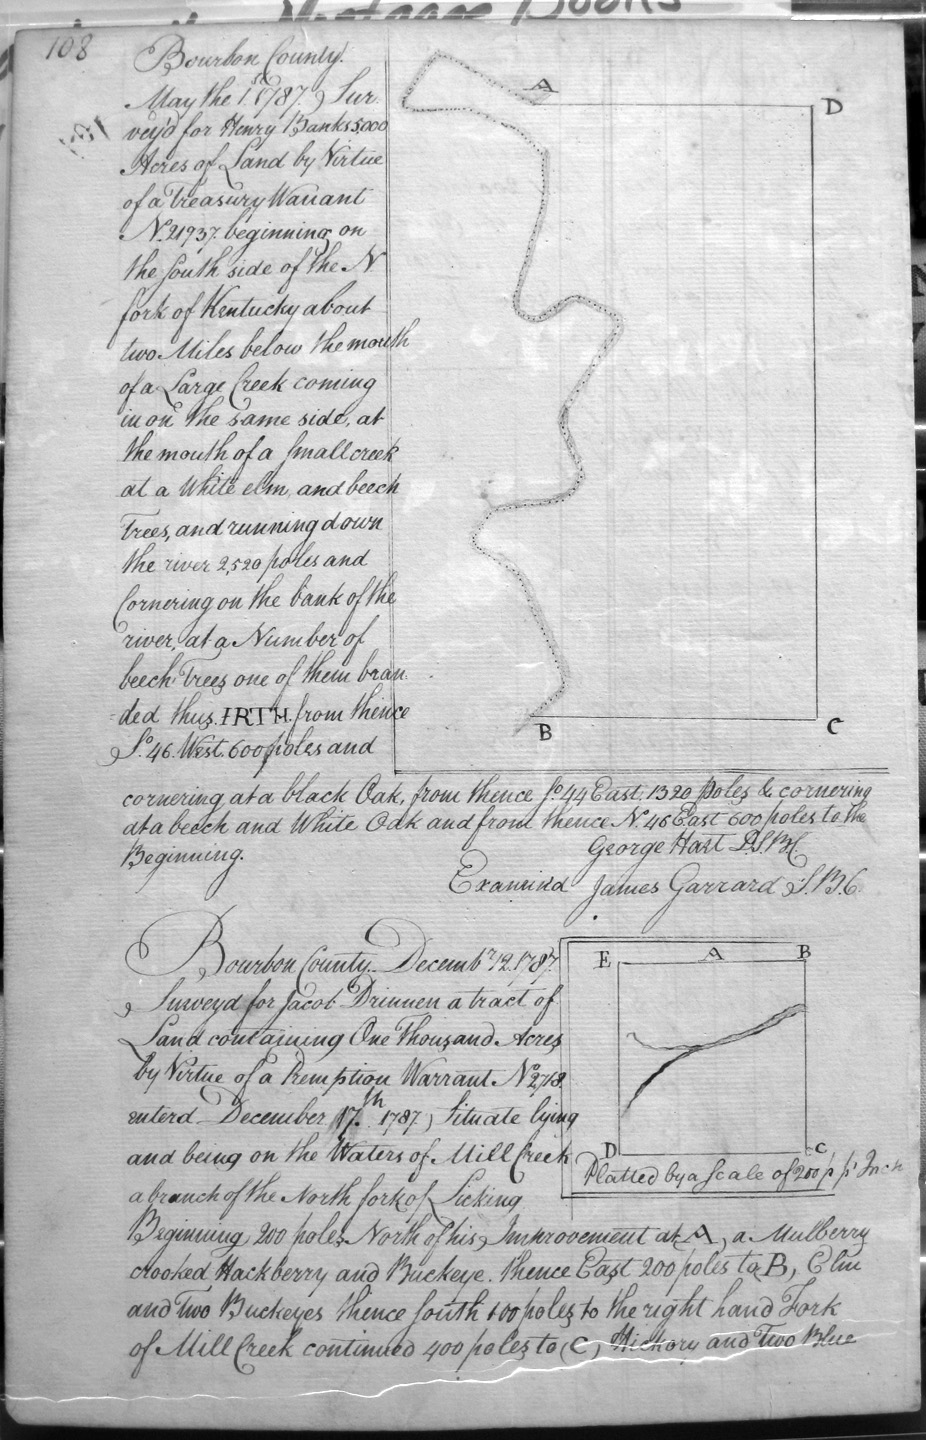 Mortgage Books
108
Bourbon County.
May the 1st 1787. Sur
vey'd for Henry Banks 5,000
Acres of Land by Virtue
of a Treasury Warrant
No. 21937. beginning on
the South side of the N
fork of Kentucky about
two Miles below the mouth
of a Large Creek coming
in on the same side, at
the mouth of a Small creek
at a White elm, and beech
Trees, and running down
the river 2,520 poles and
Cornering on the bank of the
river, at a Number of
beech Trees one of them bran
=ded thus. IRTH. from thence
So. 46. West. 600 poles and
cornering at a black Oak, from thence So. 44 East. 1320 Poles & cornering
at a beech and White Oak and from thence N. 46 East 600 poles to the
Beginning.
George Hart D.S.B.C.
Examined James Garrard S.B.C.
A
D
B
C
Bourbon County. Decembr. 12. 1787.
Surveyd for Jacob Drinnen a tract of
Land containing One Thousand Acres
by Virtue of a Premption Warrant No. 2718
enterd December 17.th 1787, Situate lying
and being on the Waters of Mill Creek
a branch of the North fork of Licking
Beginning 200 poles North of his Improvement at A, a Mulberry
crooked Hackberry and Buckeye. thence East 200 poles to B, Elm
and Two Buckeyes thence South 100 poles to the right hand Fork
of Mill Creek continued 400 poles to (C) Hickory and Two Blue
E
A
B
D
C
Platted by a Scale of 200 p pr. Inch